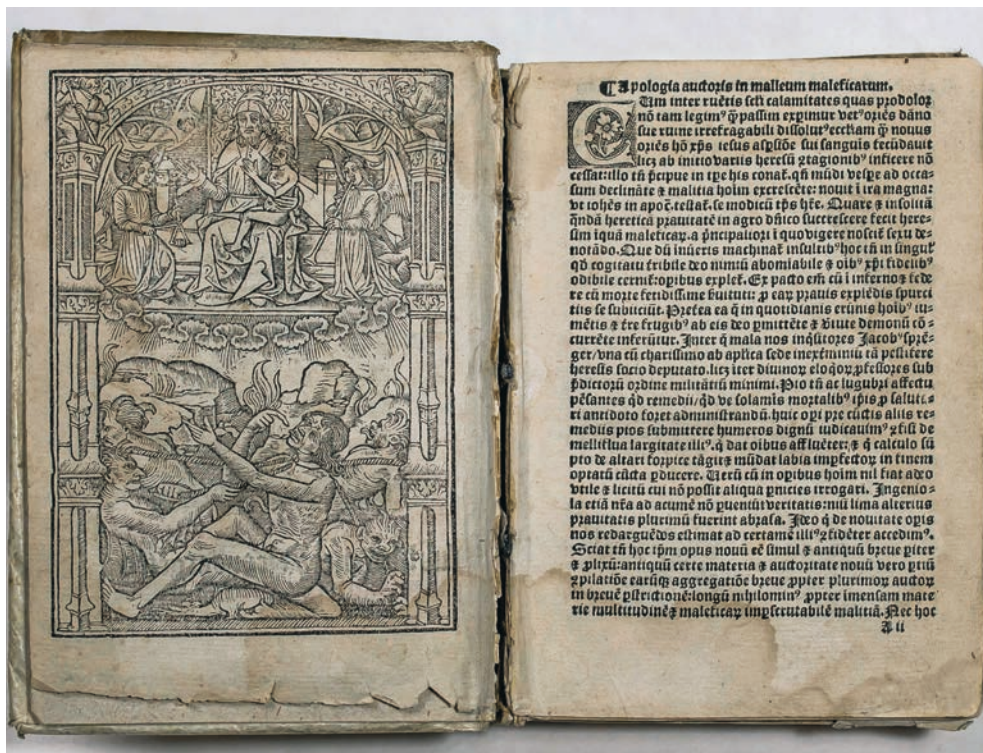 ¶ Apologia auctoris in malleum maleficarum.
CUm inter ruẽtis sc̃li calamitates quas prodolor
nõ tam legimꝰ q̃ passim exꝑimur vetꝰ oriẽs dãno
sue ruine irrefragabili dissolutꝰ ecc̃tiam q̃ nouus
oriẽs hõ xp̃s iesus asꝑsiõe sui sanguis fecũdauit
licꝫ ab initio variis heresũ ꝯtagionibꝰ inficere nõ
cessat: illo tñ p̃cipue in tp̃e his conat᷑. qñ mũdi vesꝑe ad occa-
sum declinãte ⁊ malitia hoĩm excrescẽte: nouit ĩ ira magna:
vt iohẽs in apoc̃. testat᷑. se modicũ tp̃s hr̃e. Quare ⁊ insolitã
qñdã heretica prauitatẽ in agro dñico succrescere fecit here-
sim ĩquã maleficaꝝ. a p̃ncipaliori ĩ quo vigere noscit᷑ sexu de-
notãdo. Que dũ inũeris machinat᷑ insultibꝰ hoc tñ in singul᷑
qd̃ cogitatu t̃ribile deo nimiũ abomĩabile ⁊ oĩbꝰ xp̃i fidelibꝰ
odibile cernit᷑: oꝑibus explet᷑. Ex pacto em̃ cũ ĩ inferno ⁊ fede
re cũ morte fetidissime ẽuituti: ꝓ eaꝝ prauis explẽdis spurci
tiis se subiiciũt. P̃terea ea q̃ in quotidianis erũnis hoĩbꝰ iu-
mẽtis ⁊ t̃re frugibꝰ ab eis deo ꝑmittẽte ⁊ ꝟtute demonũ cõ-
currẽte inferũtur. Inter q̃ mala nos inq̃sitores Jacobꝰ sprẽ-
ger/vna cũ charissimo ab aplĩca sede in exterminiũ tã pestifere
heresis socio deputato. licꝫ iter diuinoꝝ eloq̃oꝝ ꝓfessores sub
p̃dictoꝝ ordine militãtiũ minimi. Pio tñ ac lugubri affectu
pẽsantes qd̃ remedii/qd̃ ve solamis mortalibꝰ ip̃is ꝓ saluta-
ri antidoto foret administrandũ. huic oꝑi pre cũctis aliis re-
mediis pios submittere humeros dignũ iudicauimꝰ ꝯfisi de
melliflua largitate illiꝰ. q̃ dat oĩbus affluẽter: ⁊ q̃ calculo sũ
pto de altari forpice tãgit ⁊ mũdat labia imꝑfectoꝝ in finem
optatũ cũcta ꝑducere. Uerũ cũ in oꝑibus hoĩm nil fiat adeo
vtile ⁊ licitũ cui nõ possit aliqua ꝑnicies irrogari. Ingenio-
la etiã nr̃a ad acumẽ nõ ꝑueniũt veritatis: nisi lima alterius
prauitatis plurimũ fuerint abrasa. Ideo q̃ de nouitate oꝑis
nos redarguẽdos estimat ad certamẽ illiꝰ ꝯfidẽter accedimꝰ.
Sciat tñ hoc ip̃m opus nouũ eẽ simul ⁊ antiquũ breue ꝑiter
⁊ ꝓlixũ: antiquũ certe materia ⁊ auctoritate nouũ vero ꝑtiũ
ꝯpilatiõe earũqꝫ aggregatiõe breue ꝓpter plurimoꝝ auctoꝝ
in breuẽ ꝑstrictionẽ: longũ nihilominꝰ ꝓpter imensam mate
rie multitudinẽ ⁊ maleficaꝝ imꝑscrutabilẽ malitiã. Nec hoc
A ii